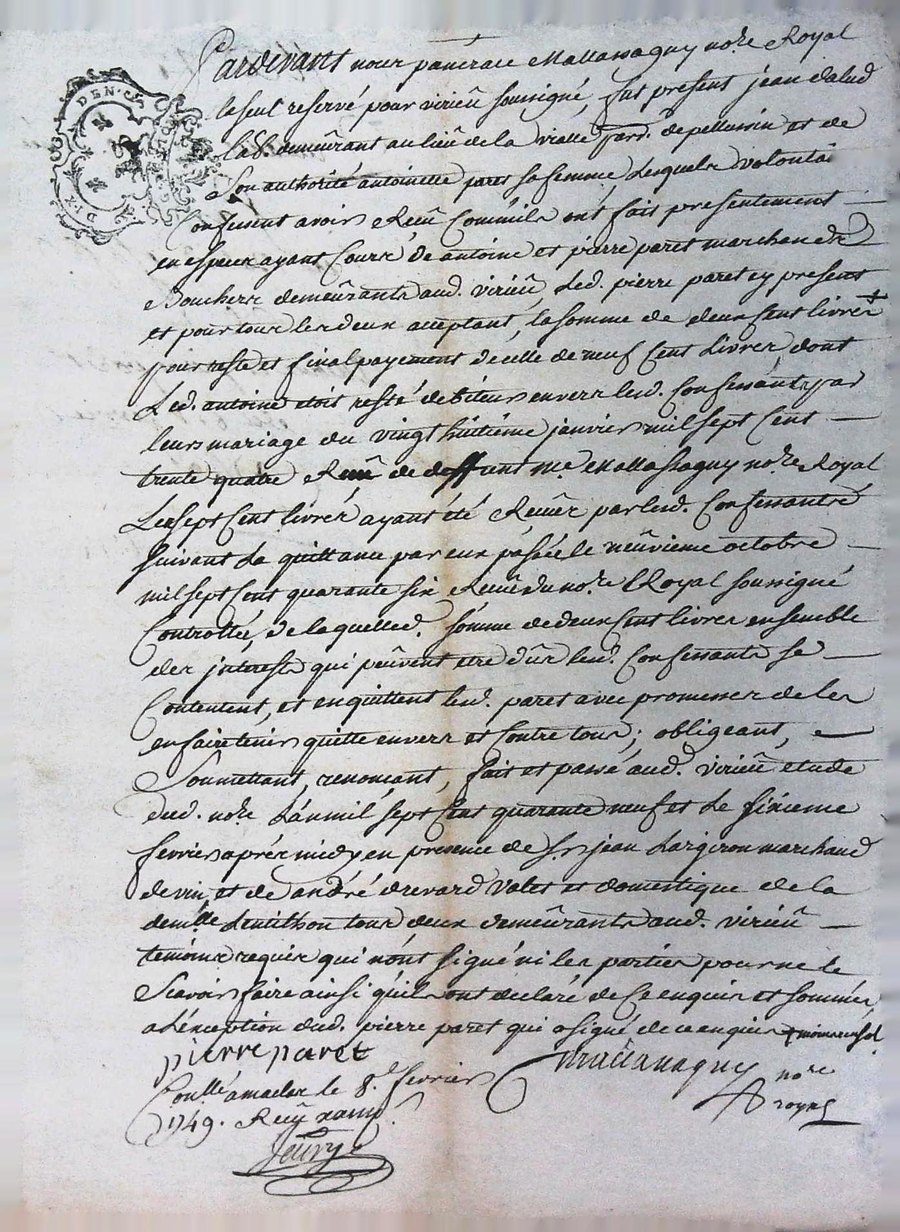 DEN.
DIX
Pardevant nous pancrace Mallassagny nore Royal
le seul reservé pour virieû soussigné, fut present jean dalud
lab. demeûrant au lieû de la vialle parr. de pellussin et de
Son authorité antoinette paret sa femme Lesquels volontai
Confessent avoir Reçû Comm'ils ont fait presentement
en especes ayant Cours de antoine et pierre paret marchands
Bouchers demeûrants aud. virieû, Led. pierre paret cy present
et pour tous les deux acceptant, la somme de deux Cent livres +
pour reste et final payement de celle de neuf Cent Livres, dont
Led. antoine etoit resté debiteur envers lesd. Confessants par
leurs mariage du vingt huitième janvier mil sept Cent
trente quatre Reçû de deffunt me Mallassagny nore Royal
Les sept Cent livres ayant été Reçües par lesd. Confessants
suivant La quittance par eux passée le neûvieme octobre
mil sept Cent quarante six Reçûe du nore Royal soussigné
Controllée, de laquelle d. somme de deux Cent livres ensemble
des jnterests qui peûvent etre dûs lesd. Confessants se
Contentent, et en quittent lesd. paret avec promesses de les
en faire tenir quitte envers et Contre tous; obligeant,
Soumettant, renonçant, fait et passé aud. virieû etude
dud. nore L'an mil sept Cent quarante neuf et Le sixieme
fevrier aprés midy en presence de sr jean Largeron marchand
de vin, et de andré drevard valet et domestique de la
demlle Lentilhon tous deux demeûrants aud. virieû
temoins requis qui n'ont signé ni les parties pour ne le
Scavoir faire ainsi qu'ils ont declaré de Ce enquis et sommés,
a L'exception dud. pierre paret qui a signé de ce enquis + moins un sol
pierre paret
Mallassagny nore
royal
Conllé a maclas le 8e fevrier
1749. Reçu
Jeury